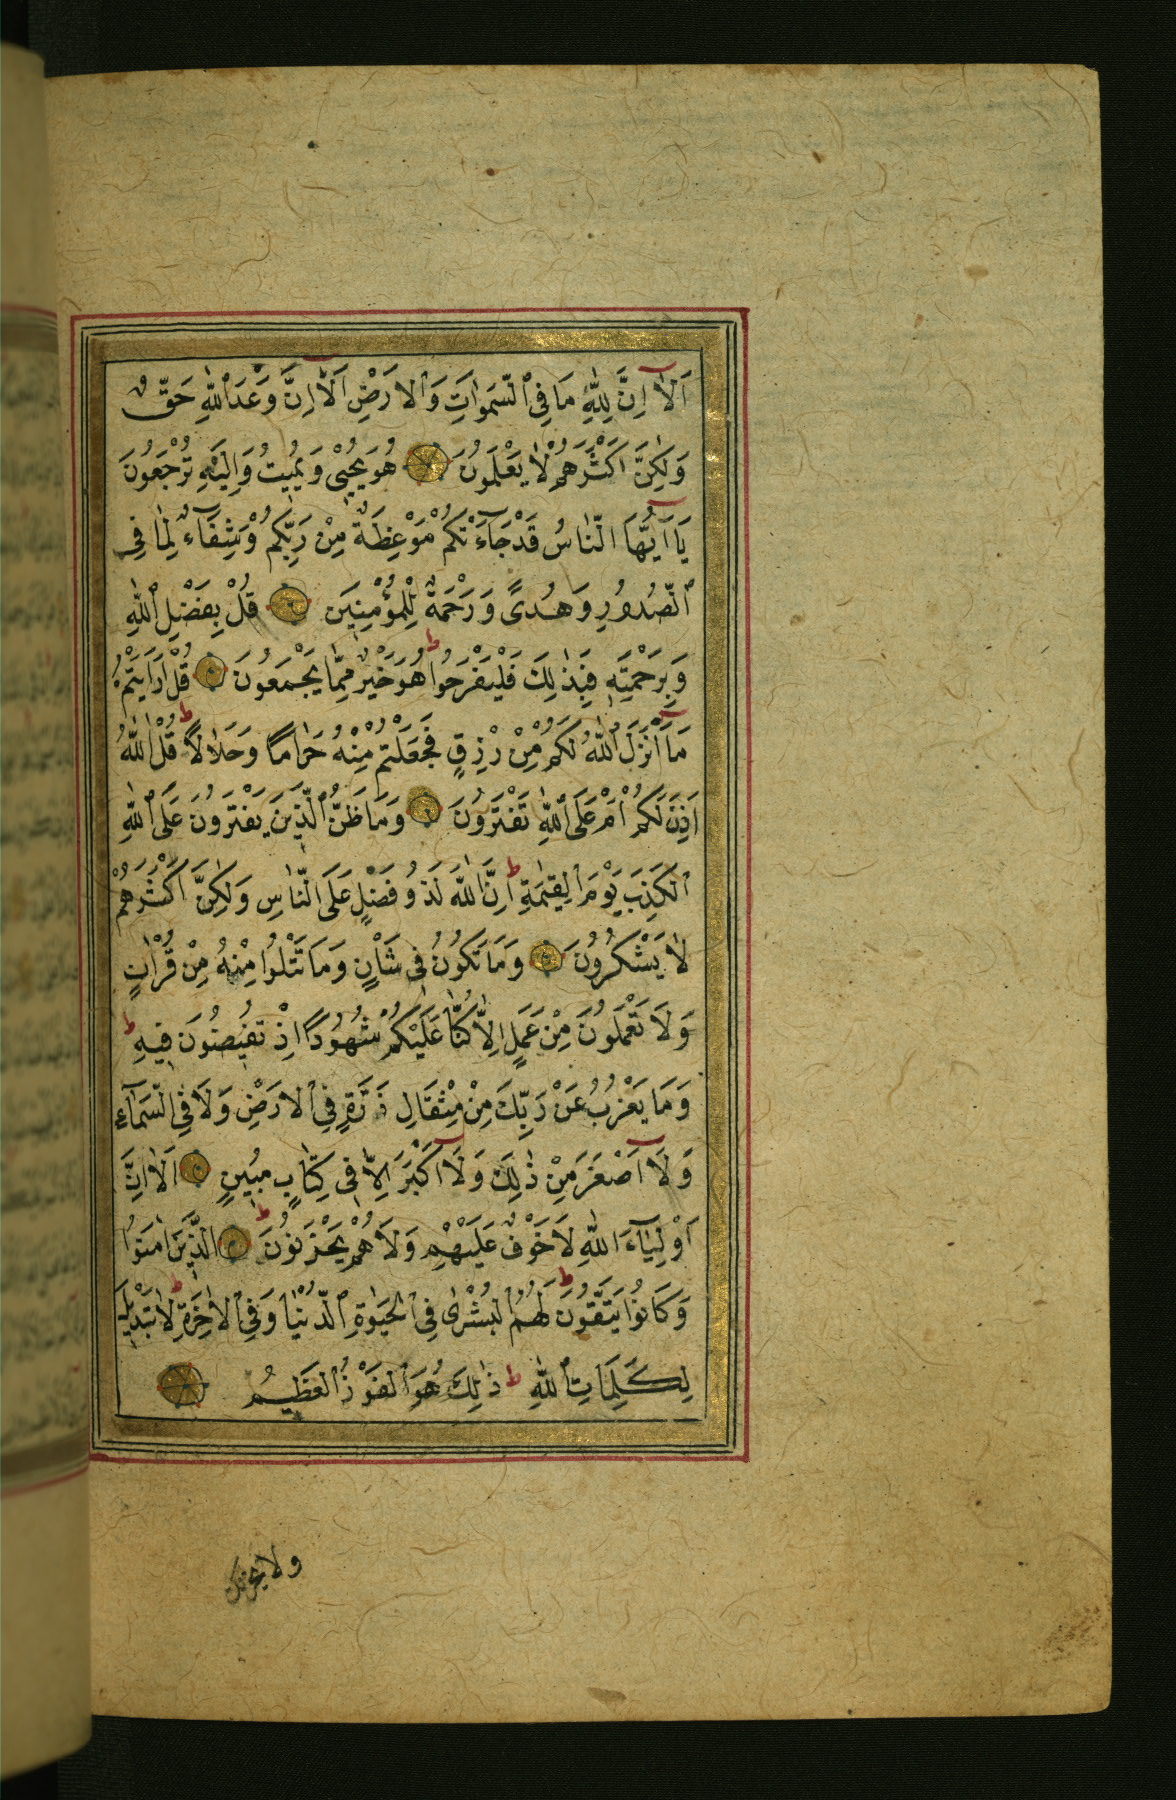 اَلَٓا اِنَّ لِلّٰهِ مَا فِي ٱلسَّمٰوَاتِ وَٱلْاَرْضِ اَلَٓا اِنَّ وَعْدَ ٱللّٰهِ حَقٌّ
وَلٰكِنَّ اَكْثَرَهُمْ لَا يَعْلَمُونَ هُوَ يُحْيٖى وَيُمِيتُ وَاِلَيْهِ تُرْجَعُونَ
يَٓا اَيُّهَا النَّاسُ قَدْ جَٓاءَتْكُمْ مَوْعِظَةٌ مِنْ رَبِّكُمْ وَشِفَٓاءٌ لِمَا فِي
ٱلصُّدُورِ وَهُدًى وَرَحْمَةٌ لِلْمُؤْمِنِينَ قُلْ بِفَضْلِ ٱللّٰهِ
وَبِرَحْمَتِهٖ فَبِذٰلِكَ فَلْيَفْرَحُوا ط هُوَ خَيْرٌ مِمَّا يَجْمَعُونَ قُلْ اَرَاَيْتُمْ
مَٓا اَنْزَلَ ٱللّٰهُ لَكُمْ مِنْ رِزْقٍ فَجَعَلْتُمْ مِنْهُ حَرَامًا وَحَلَالًا ط قُلْ آللّٰهُ
اَذِنَ لَكُمْ اَمْ عَلَى ٱللّٰهِ تَفْتَرُونَ وَمَا ظَنُّ ٱلَّذِينَ يَفْتَرُونَ عَلَى ٱللّٰهِ
ٱلْكَذِبَ يَوْمَ ٱلْقِيٰمَةِ ط اِنَّ اللّٰهَ لَذُو فَضْلٍ عَلَى النَّاسِ وَلٰكِنَّ اَكْثَرَهُمْ
لَا يَشْكُرُونَ وَمَا تَكُونُ فِي شَاْنٍ وَمَا تَتْلُوا مِنْهُ مِنْ قُرْاٰنٍ
وَلَا تَعْمَلُونَ مِنْ عَمَلٍ اِلَّا كُنَّا عَلَيْكُمْ شُهُودًا اِذْ تُفِيضُونَ فِيهِ ط
وَمَا يَعْزُبُ عَنْ رَبِّكَ مِنْ مِثْقَالِ ذَرَّةٍ فِي ٱلْاَرْضِ وَلَا فِي السَّمَٓاءِ
وَلَٓا اَصْغَرَ مِنْ ذٰلِكَ وَلَٓا اَكْبَرَ اِلَّا فِي كِتَابٍ مُبِينٍ اَلَٓا اِنَّ
اَوْلِيَٓاءَ اللّٰهِ لَا خَوْفٌ عَلَيْهِمْ وَلَا هُمْ يَحْزَنُونَ ط الَّذِينَ اٰمَنُوا
وَكَانُوا يَتَّقُونَ ط لَهُمُ ٱلْبُشْرٰى فِي ٱلْحَيٰوةِ ٱلدُّنْيَا وَفِي ٱلْاٰخِرَةِ ط لَا تَبْدِيلَ
لِكَلِمَاتِ ٱللّٰهِ ط ذٰلِكَ هُوَ ٱلْفَوْزُ ٱلْعَظِيمُ
ولا يحزنك